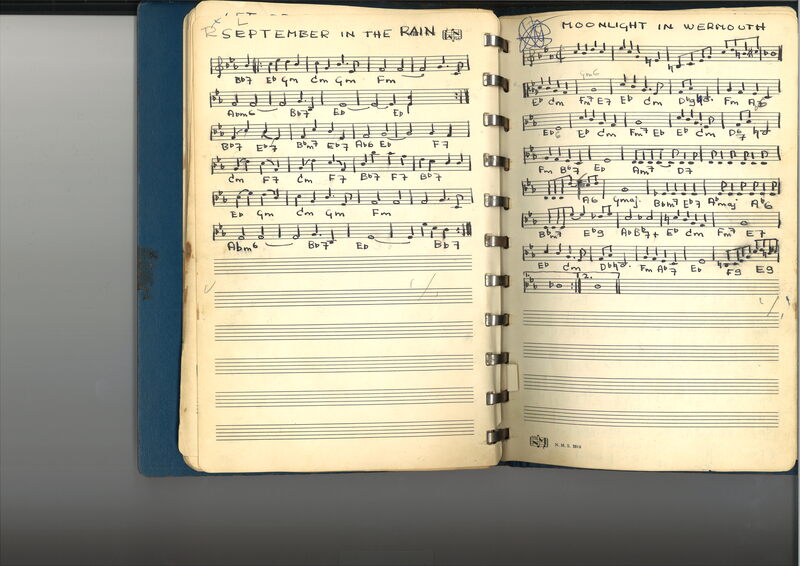 SEPTEMBER IN THE RAIN
Bb7 Eb Gm Cm Gm Fm
Abm6 Bb7 Eb Eb
Bb7 Eb7 Bbm7 Eb7 Ab6 Eb F7
Cm F7 Cm F7 Bb7 F7 Bb7
Eb Gm Cm Gm Fm
Abm6 Bb7 Eb Bb7
MOONLIGHT IN WERMOUTH
Gm6
Eb Cm Fm7 E7 Eb Cm Db9 Fm
Eb Eb Cm Fm7 Eb Eb Cm
Fm Bb7 Eb Am7 D7
A6 Gmaj. Bbm7 Eb7 Abmaj Ab6
Bbm7 Eb9 Ab Bb7+ Eb Cm Fm7 E7
Eb Cm Fm Ab7 Eb F9 E9
2.
N. M. S.